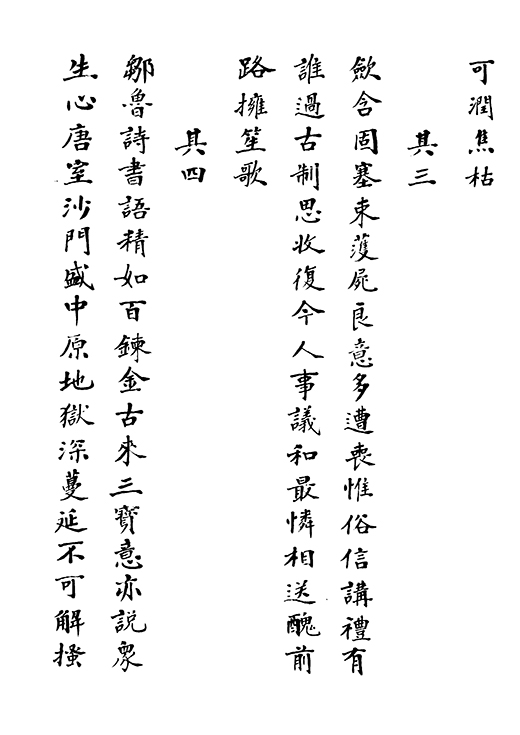 可潤焦枯
其三
歛含固塞束護屍良意多遭喪惟俗信講禮有
誰過古制思收復今人事議和最憐相送醜前
路擁笙歌
其四
鄒魯詩書語精如百鍊金古來三寶意亦說眾
生心唐室沙門盛中原地獄深蔓延不可解搔